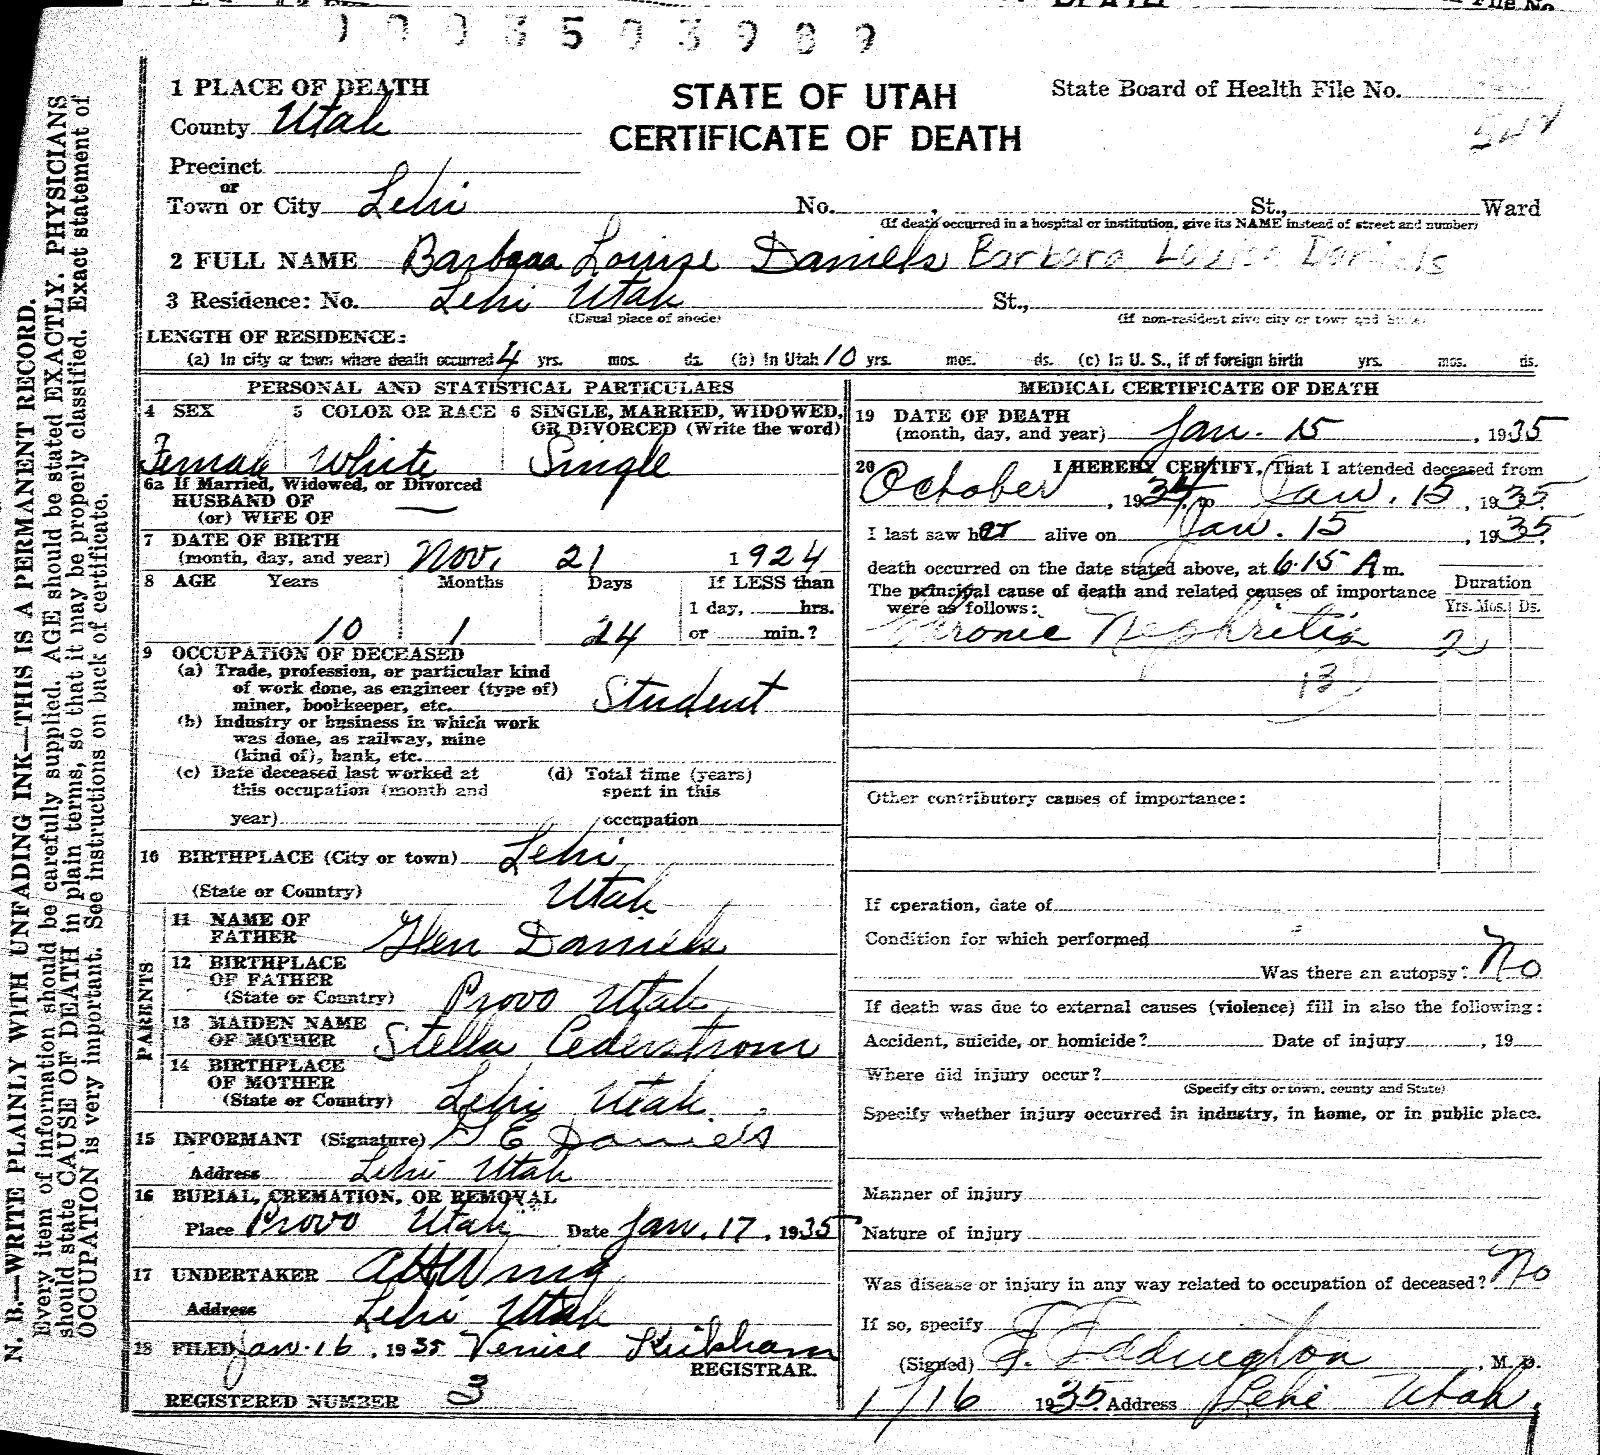 0003503909
1 PLACE OF DEATH
STATE OF UTAH
CERTIFICATE OF DEATH
State Board of Health File No.
County Utah
Precinct
or
Town or City Lehi No. St., Ward
(If death occurred in a hospital or institution, give its NAME instead of street and number)
2 FULL NAME Barbara Louise Daniels Barbara Louise Daniels
3 Residence: No. Lehi Utah St.,
(Usual place of abode) (If non-resident give city or town and State)
LENGTH OF RESIDENCE:
(a) In city or town where death occurred 4 yrs. mos. ds. (b) In Utah 10 yrs. mos. ds. (c) In U. S., if of foreign birth yrs. mos. ds.
PERSONAL AND STATISTICAL PARTICULARS
4 SEX 5 COLOR OR RACE 6 SINGLE, MARRIED, WIDOWED, OR DIVORCED (Write the word)
Female White Single
6a If Married, Widowed, or Divorced
HUSBAND OF
(or) WIFE OF —
7 DATE OF BIRTH
(month, day, and year) Nov. 21 1924
8 AGE Years Months Days If LESS than
1 day, hrs.
10 1 24 or min.?
9 OCCUPATION OF DECEASED
(a) Trade, profession, or particular kind
of work done, as engineer (type of)
miner, bookkeeper, etc. Student
(b) Industry or business in which work
was done, as railway, mine
(kind of), bank, etc.
(c) Date deceased last worked at (d) Total time (years)
this occupation (month and spent in this
year) occupation
10 BIRTHPLACE (City or town) Lehi
(State or Country) Utah
PARENTS
11 NAME OF
FATHER Glen Daniels
12 BIRTHPLACE
OF FATHER
(State or Country) Provo Utah
13 MAIDEN NAME
OF MOTHER Stella Cederstrom
14 BIRTHPLACE
OF MOTHER
(State or Country) Lehi Utah
15 INFORMANT (Signature) G E Daniels
Address Lehi Utah
16 BURIAL, CREMATION, OR REMOVAL
Place Provo Utah Date Jan. 17, 1935
17 UNDERTAKER
Address Lehi Utah
18 FILED Jan. 16, 1935 Venice Kirkham
REGISTRAR.
REGISTERED NUMBER 3
MEDICAL CERTIFICATE OF DEATH
19 DATE OF DEATH
(month, day, and year) Jan. 15, 1935
20 I HEREBY CERTIFY, That I attended deceased from
October, 1934, to Jan. 15, 1935
I last saw her alive on Jan. 15, 1935
death occurred on the date stated above, at 6:15 A m.
The principal cause of death and related causes of importance
were as follows: Duration
Yrs. Mos. Ds.
Chronic Nephritis 2
Other contributory causes of importance:
If operation, date of
Condition for which performed
Was there an autopsy? No
If death was due to external causes (violence) fill in also the following:
Accident, suicide, or homicide? Date of injury , 19
Where did injury occur?
(Specify city or town, county and State)
Specify whether injury occurred in industry, in home, or in public place.
Manner of injury
Nature of injury
Was disease or injury in any way related to occupation of deceased? No
If so, specify
(Signed) F. Eddington, M. D.
1/16 1935 Address Lehi Utah
N. B.—WRITE PLAINLY WITH UNFADING INK—THIS IS A PERMANENT RECORD.
Every item of information should be carefully supplied. AGE should be stated EXACTLY. PHYSICIANS
should state CAUSE OF DEATH in plain terms, so that it may be properly classified. Exact statement of
OCCUPATION is very important. See instructions on back of certificate.